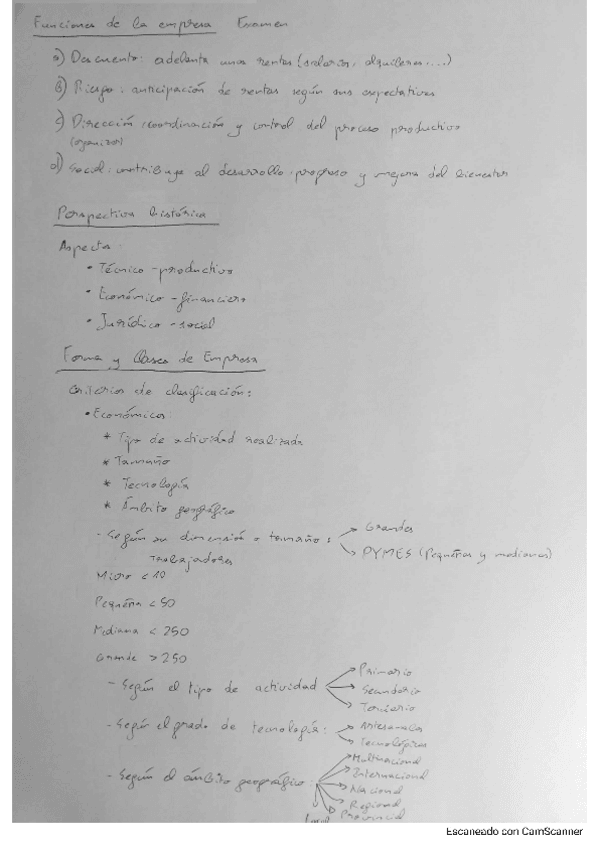 Funciones de la empresa Examen
a) Descuento: adelanta unas rentas (salarios, alquileres, ...)
b) Riesgo: anticipación de rentas según sus expectativas
c) Dirección: coordinación y control del proceso productivo
(organizar)
d) Social: contribuye al desarrollo, progreso y mejora del bienestar
Perspectiva histórica
Aspecto:
• Técnico - productivo
• Económico - financiero
• Jurídico - social
Forma y Clases de Empresa
Criterios de clasificación:
• Económicos:
* Tipo de actividad realizada
* Tamaño
* Tecnología
* Ámbito geográfico
- Según su dimensión o tamaño:
Grandes
PYMES (Pequeñas y medianas)
Trabajadores
Micro < 10
Pequeña < 50
Mediana < 250
Grande > 250
- Según el tipo de actividad
Primario
Secundario
Terciario
- Según el grado de tecnología:
Artesanales
Tecnológicas
- Según el ámbito geográfico:
Multinacional
Internacional
Nacional
Regional
Provincial
Local
Escaneado con CamScanner